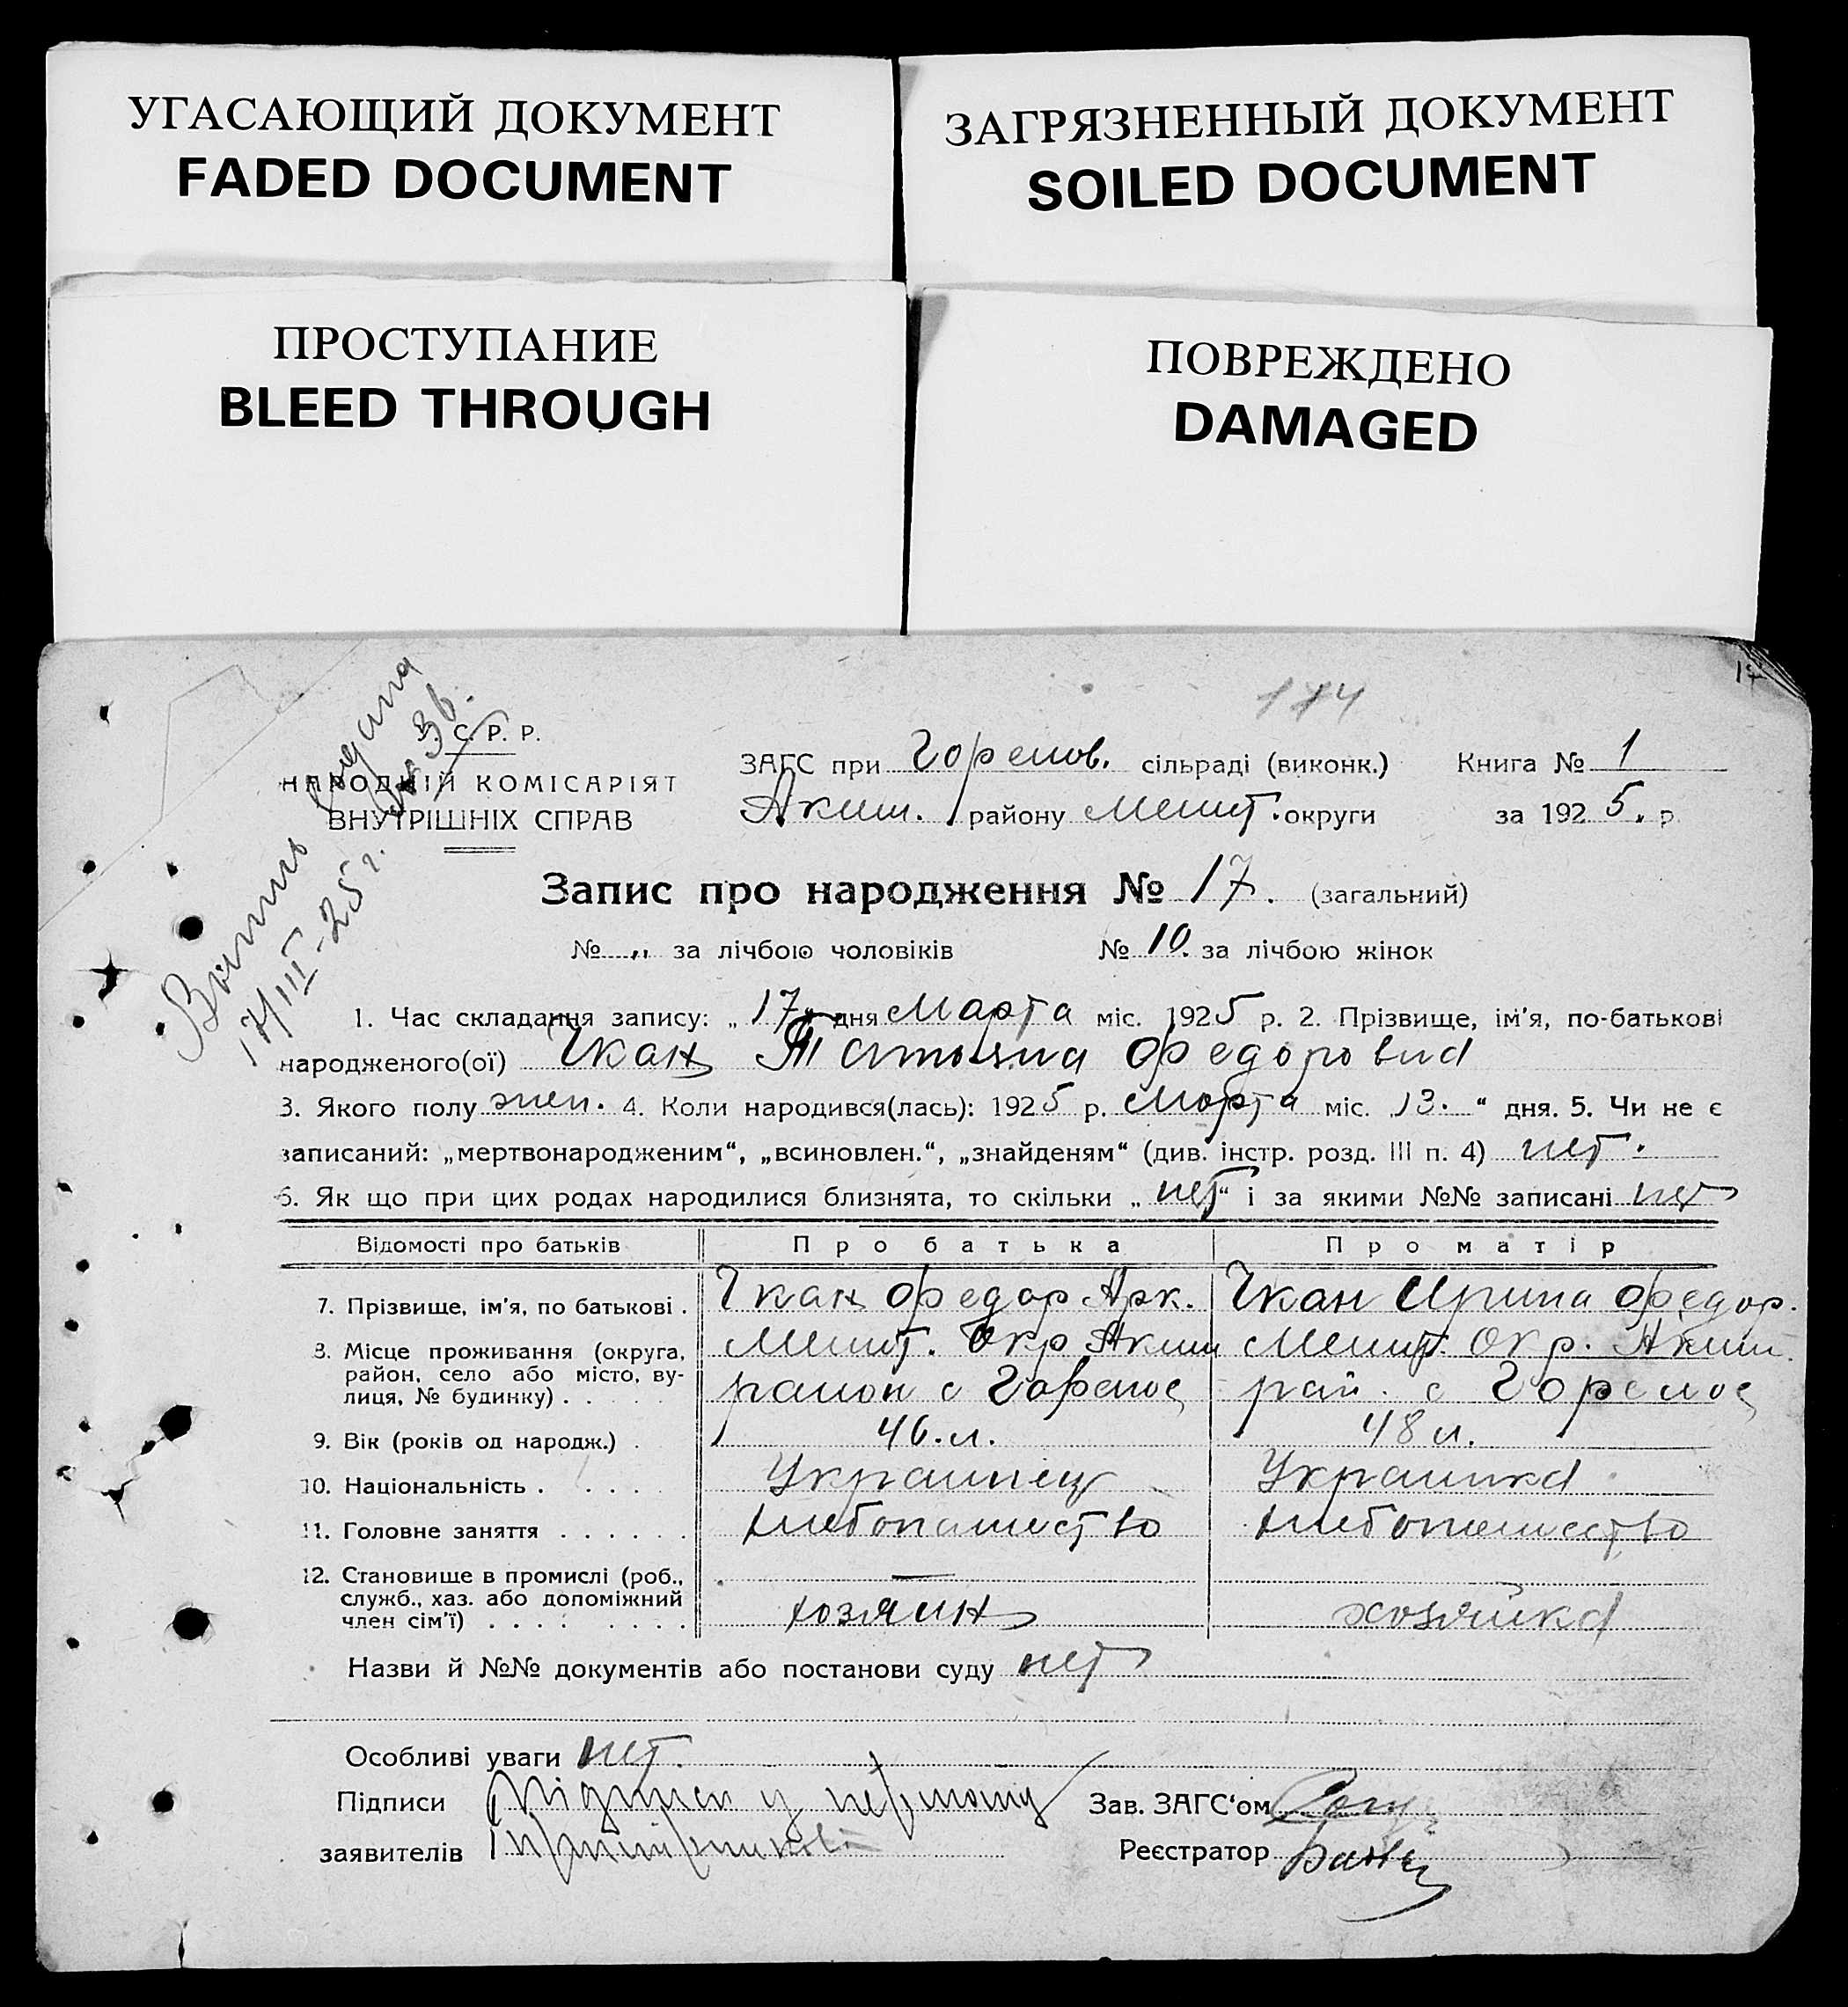 УГАСАЮЩИЙ ДОКУМЕНТ
FADED DOCUMENT
ЗАГРЯЗНЕННЫЙ ДОКУМЕНТ
SOILED DOCUMENT
ПРОСТУПАНИЕ
BLEED THROUGH
ПОВРЕЖДЕНО
DAMAGED
17
174
Выпись выдана
17/III-25 г. № 36.
У. С. Р. Р.
НАРОДНІЙ КОМІСАРІЯТ
ВНУТРІШНІХ СПРАВ
ЗАГС при Горелов. сільраді (виконк.) Книга № 1
Аким. району Мелит. округи за 1925. р
Запис про народження № 17. (загальний)
№ „ за лічбою чоловіків № 10. за лічбою жінок
1. Час складання запису: „17„ дня Марта міс. 1925 р. 2. Прізвище, ім'я, по-батькові
народженого(ої) Чкан Татьяна Федоровна
3. Якого полу жен. 4. Коли народився(лась): 1925 р. Марта міс. 13. “ дня. 5. Чи не є
записаний: „мертвонародженим“, „всиновлен.“, „знайденям“ (див. інстр. розд. III п. 4) нет.
6. Як що при цих родах народилися близнята, то скільки „ нет “ і за якими №№ записані нет
Відомості про батьків Про батька Про матір
7. Прізвище, ім'я, по батькові . Чкан Федор Арк. Чкан Ирина Федор.
8. Місце проживання (округа, Мелит. Окр Аким Мелит. Окр. Аким.
район, село або місто, ву-
лиця, № будинку) . . район с Горелое рай. с Горелое
9. Вік (років од народж.) . 46. л. 48 л.
10. Національність . . . . . Украинец Украинка
11. Головне заняття . . . . . . хлебопашество хлебопашество
12. Становище в промислі (роб., —
служб., хаз. або допоміжний
член сім'ї) . . . . . . . . хозяин хозяйка
Назви й №№ документів або постанови суду нет
Особливі уваги нет.
Підписи Підписи у первому Зав. ЗАГС‘ом
заявителів Реєстратор